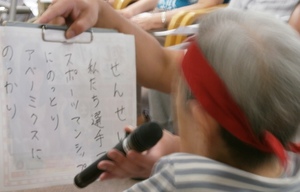 せんせい
私たち選手
スポーツマンシップ
にのっとり
アベノミクスに
のっかり